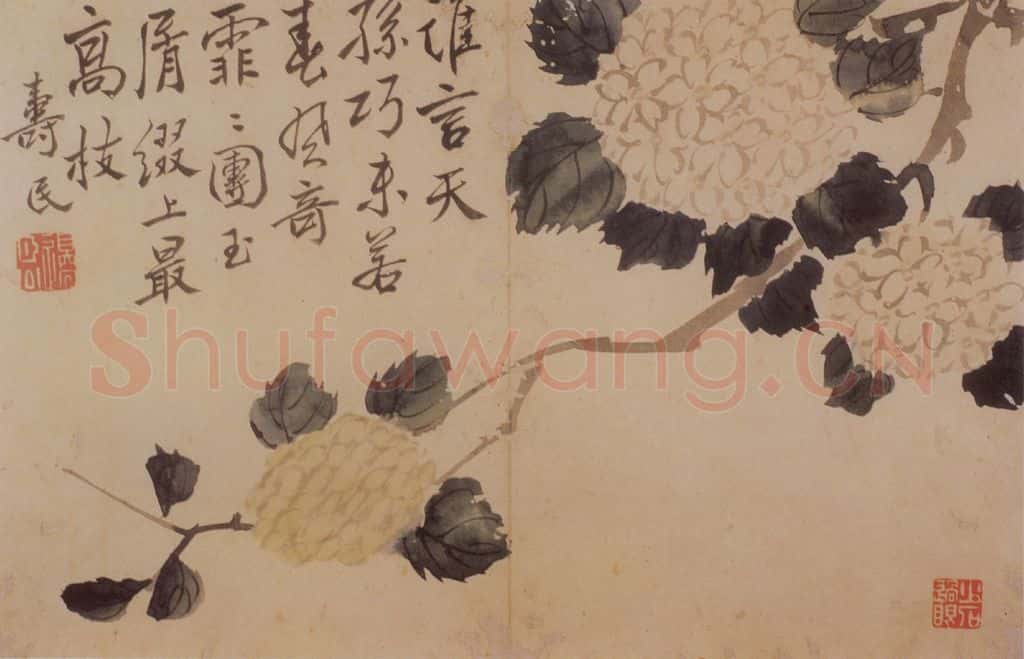 誰言天
孫巧未若
春风奇
霏〻團玉
屑綴上最
高枝
壽民
Shufawang.CN